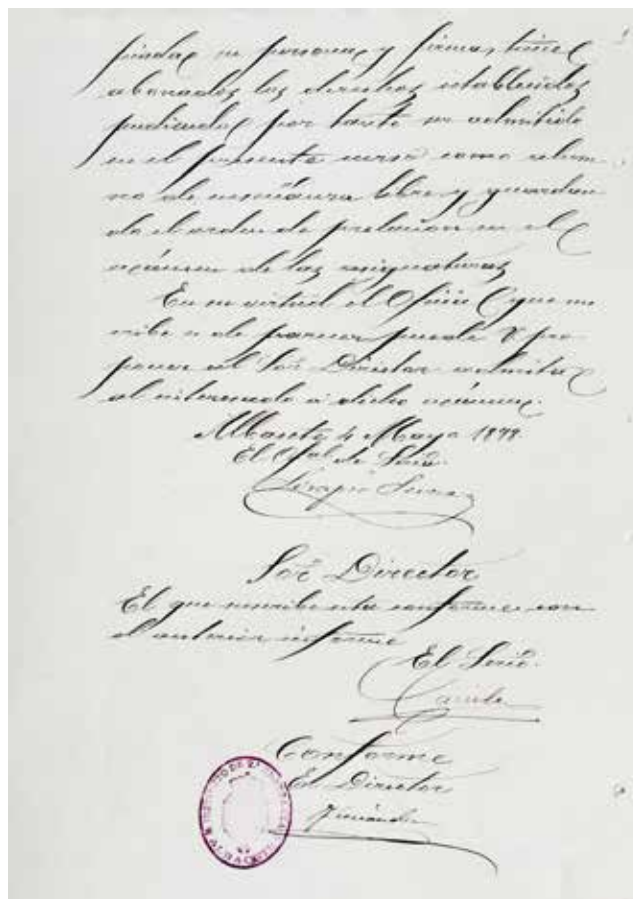 piedad su persona y firma, tiene
abonados los derechos establecidos
pudiendo por tanto ser admitido
en el presente curso como alum-
no de enseñanza libre y guardan
do el orden de prelacion en el
exámen de las asignaturas
En su virtud el Oficial que sus
cribe es de parecer puede V. pro-
poner al Sor. Director admita
al interesado a dicho exámen.
Albacete 4 Mayo 1898.
El Ofal. de Sria.
Serapio
Sor. Director
El que suscribe esta conforme con
el anterior informe
El Srio.
Conforme
El Director
INSTITUTO DE 2ª
ALBACETE